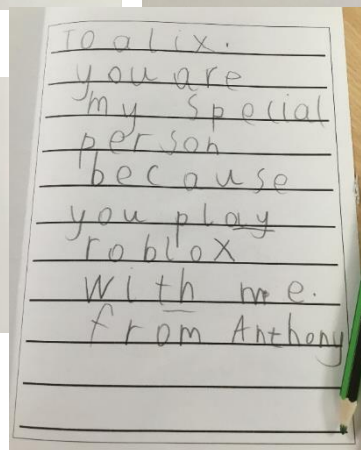 To alix.
you are
my special
person
because
you play
roblox
with me.
from Anthony